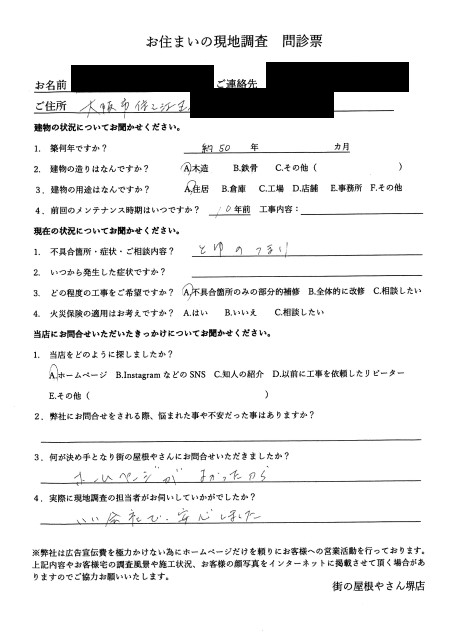 お住まいの現地調査　問診票
お名前　ご連絡先
ご住所　大阪市住之江
建物の状況についてお聞かせください。
1. 築何年ですか？　約50　年　カ月
2. 建物の造りはなんですか？　A.木造　B.鉄骨　C.その他（　）
3．建物の用途はなんですか？　A.住居　B.倉庫　C.工場　D.店舗　E.事務所　F.その他
4．前回のメンテナンス時期はいつですか？　10年前　工事内容：
現在の状況についてお聞かせください。
1. 不具合箇所・症状・ご相談内容？　とゆのつまり
2. いつから発生した症状ですか？
3. どの程度の工事をご希望ですか？　A.不具合箇所のみの部分的補修　B.全体的に改修　C.相談したい
4. 火災保険の適用はお考えですか？　A.はい　B.いいえ　C.相談したい
当店にお問合せいただいたきっかけについてお聞かせください。
1. 当店をどのように探しましたか？
A.ホームページ　B.Instagram などの SNS　C.知人の紹介　D.以前に工事を依頼したリピーター
E.その他（　）
2．弊社にお問合せをされる際、悩まれた事や不安だった事はありますか？
3．何が決め手となり街の屋根やさんにお問合せいただきましたか？
ホームページがよかったから
4．実際に現地調査の担当者がお伺いしていかがでしたか？
いい会社で、安心しました
※弊社は広告宣伝費を極力かけない為にホームページだけを頼りにお客様への営業活動を行っております。
上記内容やお客様宅の調査風景や施工状況、お客様の顔写真をインターネットに掲載させて頂く場合があ
りますのでご協力お願いいたします。
街の屋根やさん堺店